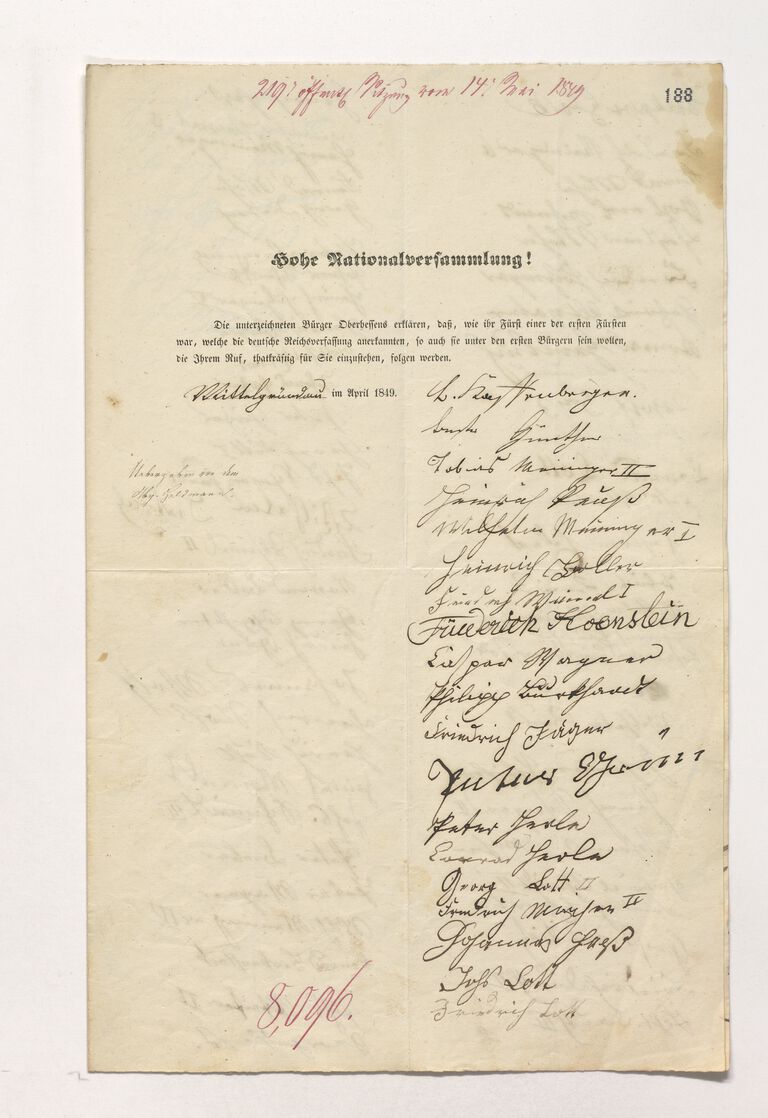 219. öffentl Sitzung vom 14. Mai 1849
188
Hohe Nationalversammlung!
Die unterzeichneten Bürger Oberhessens erklären, daß, wie ihr Fürst einer der ersten Fürsten
war, welche die deutsche Reichsverfassung anerkannten, so auch sie unter den ersten Bürgern sein wollen,
die Ihrem Ruf, thatkräftig für Sie einzustehen, folgen werden.
Mittelgründau im April 1849.
Uebergeben von dem
Abg.
Günther
Tobias Meininger II
Heinrich
Wilhelm Meininger I
Heinrich
Friederich Hoenstein
Caspar Wagner
Philipp Burkhardt
Friedrich Jäger
Peter Herle
Conrad Herle
Georg Lott II
Friedrich II
Johannes
Johs Lott
Friedrich Lott
8,096.